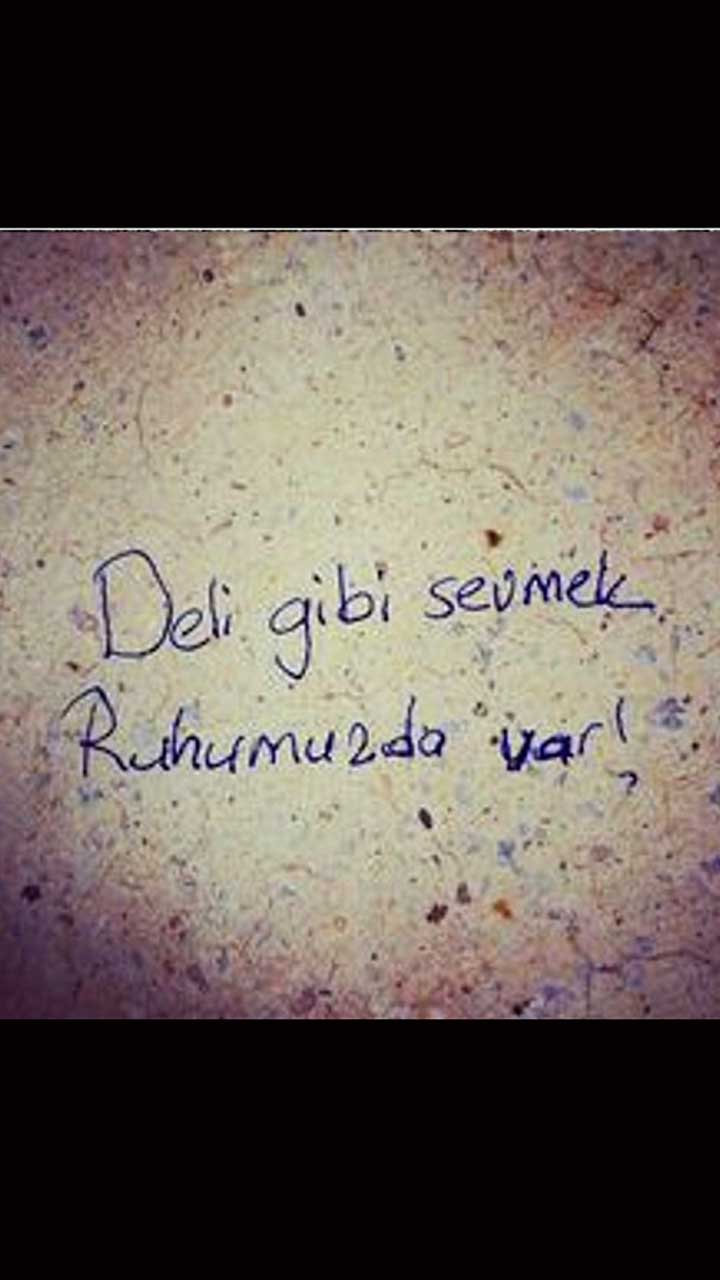 Deli gibi sevmek
Ruhumuzda var!